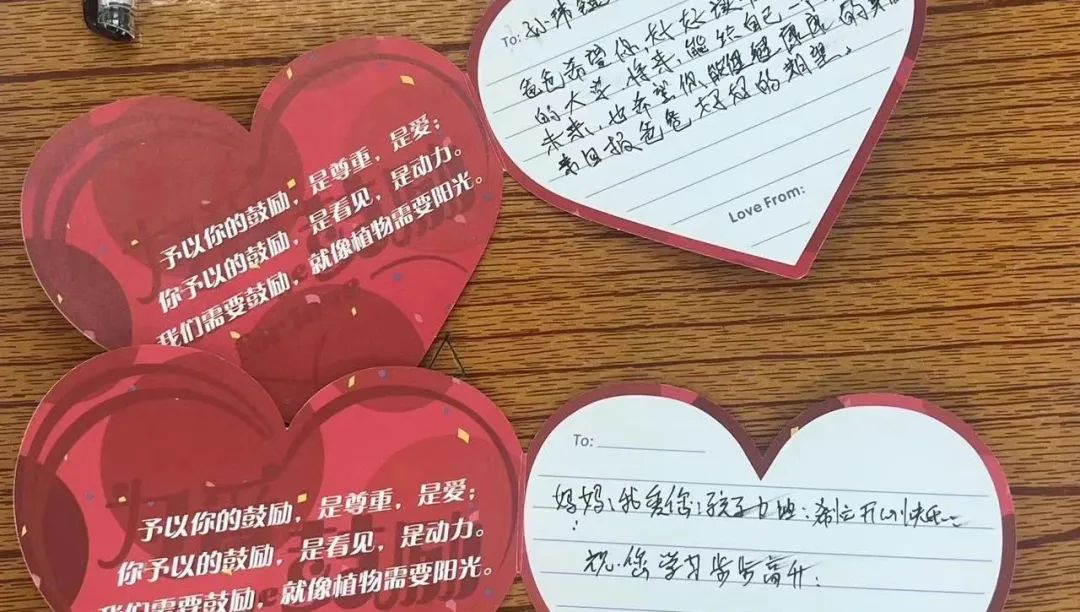 予以你的鼓励，是尊重，是爱；
你予以的鼓励，是看见，是动力。
我们需要鼓励，就像植物需要阳光。
To: 孙
爸爸希望你，好好读
的大学，将来，能给自己一个
未来，也希望你能健健康康的来
来回报爸爸妈妈的期望。
Love From:
予以你的鼓励，是尊重，是爱；
你予以的鼓励，是看见，是动力。
我们需要鼓励，就像植物需要阳光。
To:
妈妈，我爱你，孩子 开心快乐
祝您学习步步高升